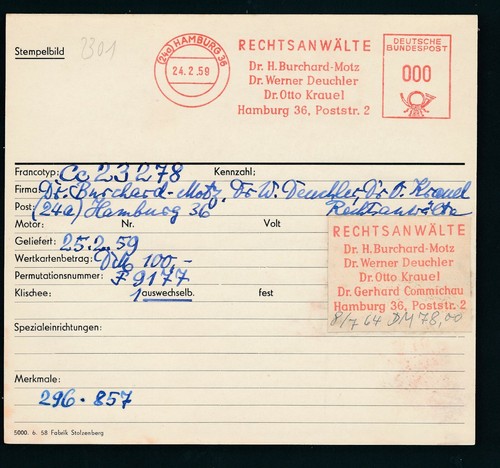 Stempelbild
2301
(24a) HAMBURG 36
24.2.59
RECHTSANWÄLTE
Dr. H. Burchard-Motz
Dr. Werner Deuchler
Dr. Otto Krauel
Hamburg 36, Poststr. 2
DEUTSCHE
BUNDESPOST
000
Francotyp: Cc 23 278 Kennzahl:
Firma: Dr. Burchard-Motz, Dr W. Deuchler, Dr O. Krauel
Post: (24a) Hamburg 36 Rechtsanwälte
Motor: Nr. Volt
Geliefert: 25.2.59
Wertkartenbetrag: DM 100,-
Permutationsnummer: F 9177
Klischee: 1 auswechselb. fest
RECHTSANWÄLTE
Dr. H. Burchard-Motz
Dr. Werner Deuchler
Dr. Otto Krauel
Dr. Gerhard Commichau
Hamburg 36, Poststr. 2
8/7 64 DM 78,00
Spezialeinrichtungen:
Merkmale:
296.857
5000. 6. 58 Fabrik Stolzenberg